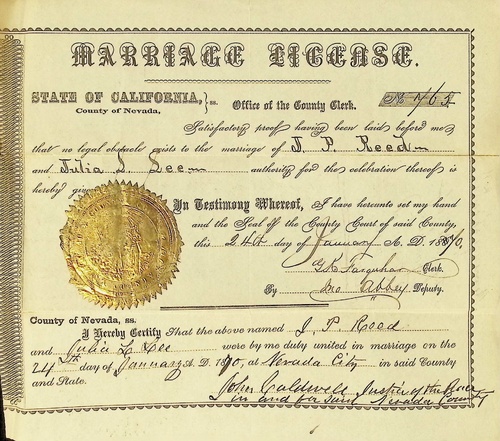 MARRIAGE LICENSE.
STATE OF CALIFORNIA, ss. Office of the County Clerk. No 765
County of Nevada,
Satisfactory proof having been laid before me
that no legal obstacle exists to the marriage of J. P. Reed
and Julia L. Lee authority for the celebration thereof is
hereby given
In Testimony Whereof, I have hereunto set my hand
and the Seal of the County Court of said County,
this 24th day of January A. D. 1870,
G. K. Farquhar Clerk.
By Jno Abbey Deputy.
County of Nevada, ss.
I Hereby Certify That the above named J. P. Reed
and Julia L. Lee were by me duly united in marriage on the
24th day of January A. D. 1870, at Nevada City in said County
and State.
John Caldwell Justice of the Peace
in and for said Nevada County